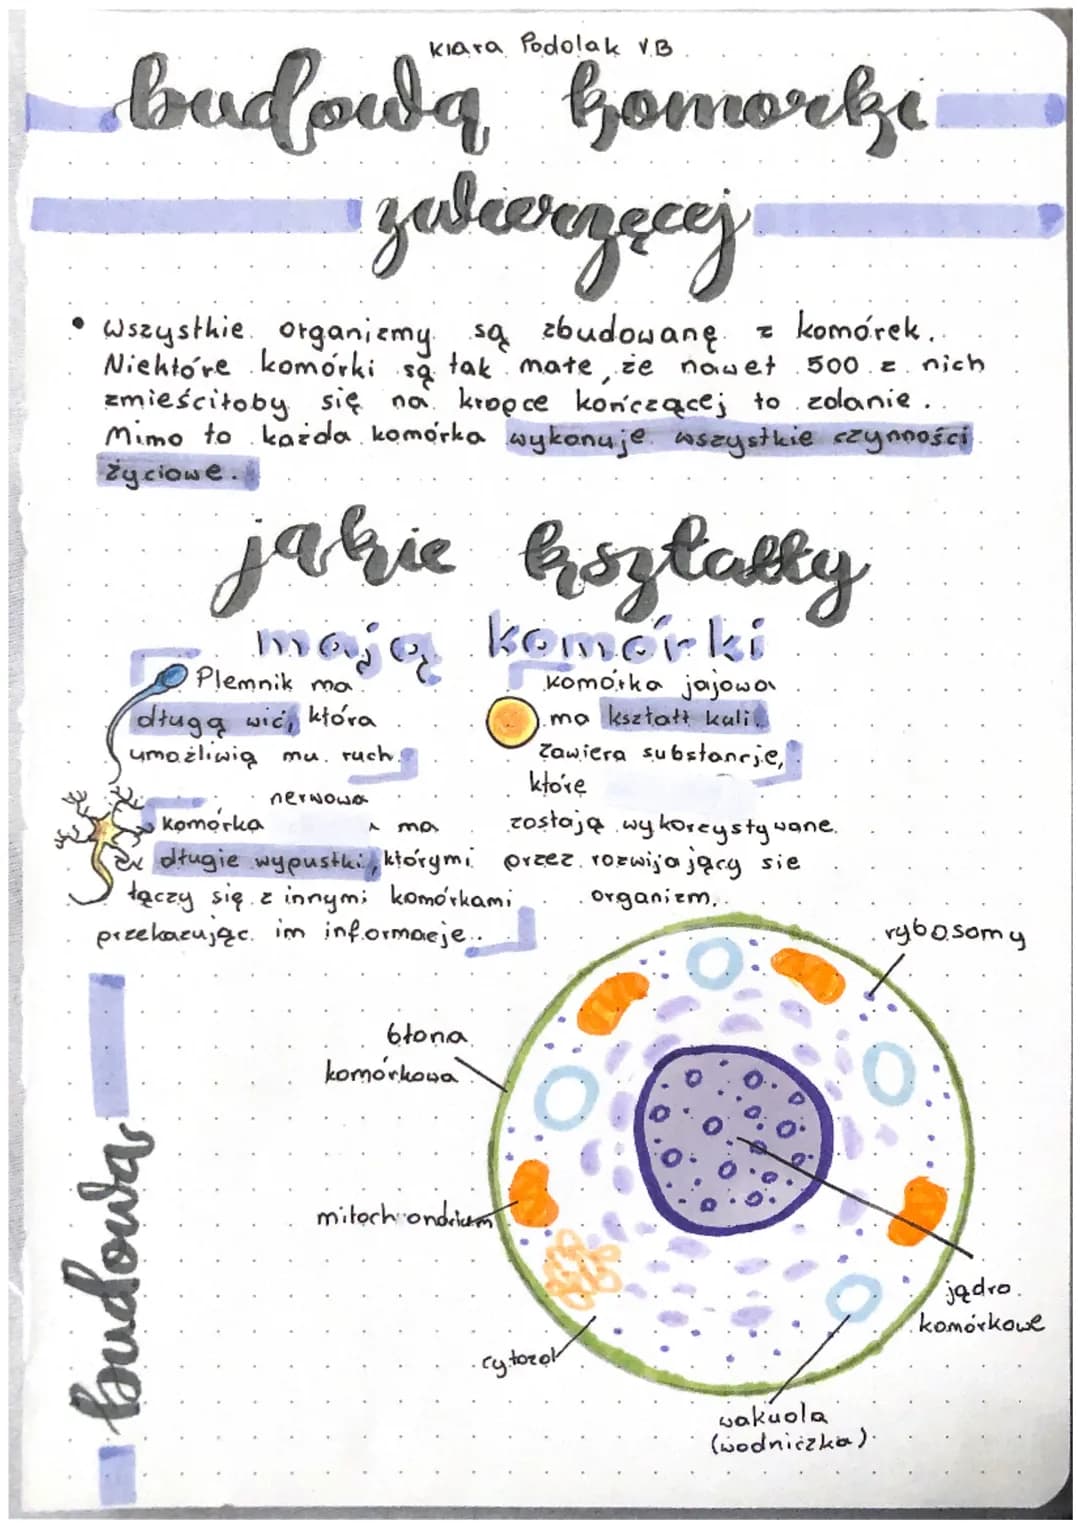 Klara Podolak V.B
budową komorki
zwierzęcej
• Wszystkie organizmy są zbudowanę z komórek.
Niektóre komórki są tak małe, że nawet 500 z nich
zmieściłoby się na kropce kończącej to zdanie.
Mimo to każda komórka wykonuje wszystkie czynności
życiowe.
jakie kształty
mają komórki
Plemnik ma
długą wić, która
umożliwią mu ruch.
komórka jajowa
ma kształt kuli.
Zawiera substancje,
którę
zostają wykorzystywane
przez rozwijający sie
organizm.
nerwowa
Komórka ^ ma
długie wypustki, którymi
łączy się z innymi komórkami
przekazując im informacje.
budowa
rybosomy
błona
komórkowa
mitochondrium
cytozol
jądro
komórkowe
wakuola
(wodniczka)